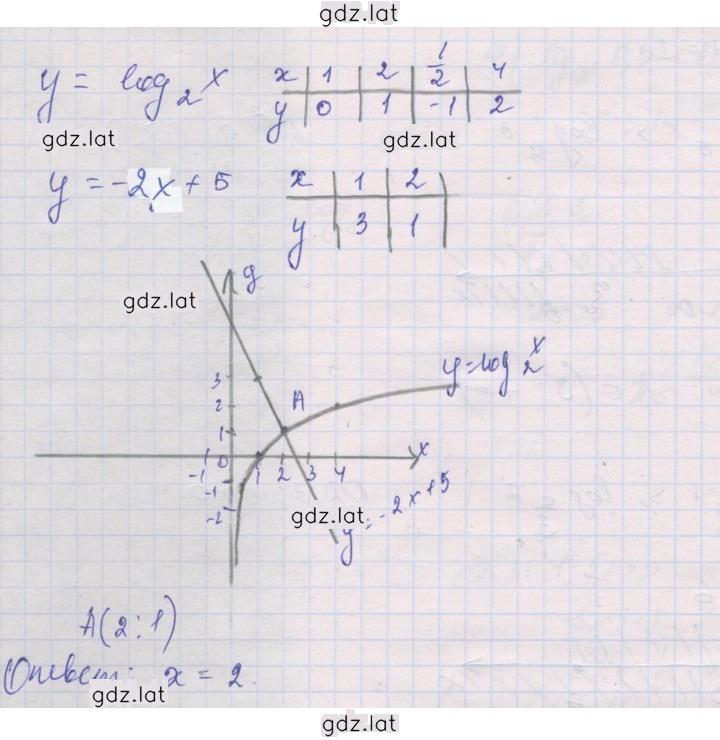 gdz.lat
y = log₂x
x | 1 | 2 | 1/2 | 4
y | 0 | 1 | -1 | 2
gdz.lat gdz.lat
y = -2x + 5
x | 1 | 2
y | 3 | 1
y
gdz.lat
y=log₂x
3
2
A
1
x
-1 0 1 2 3 4
-1
-2
gdz.lat
y=-2x+5
A(2;1)
Ответ: x = 2.
gdz.lat
gdz.lat